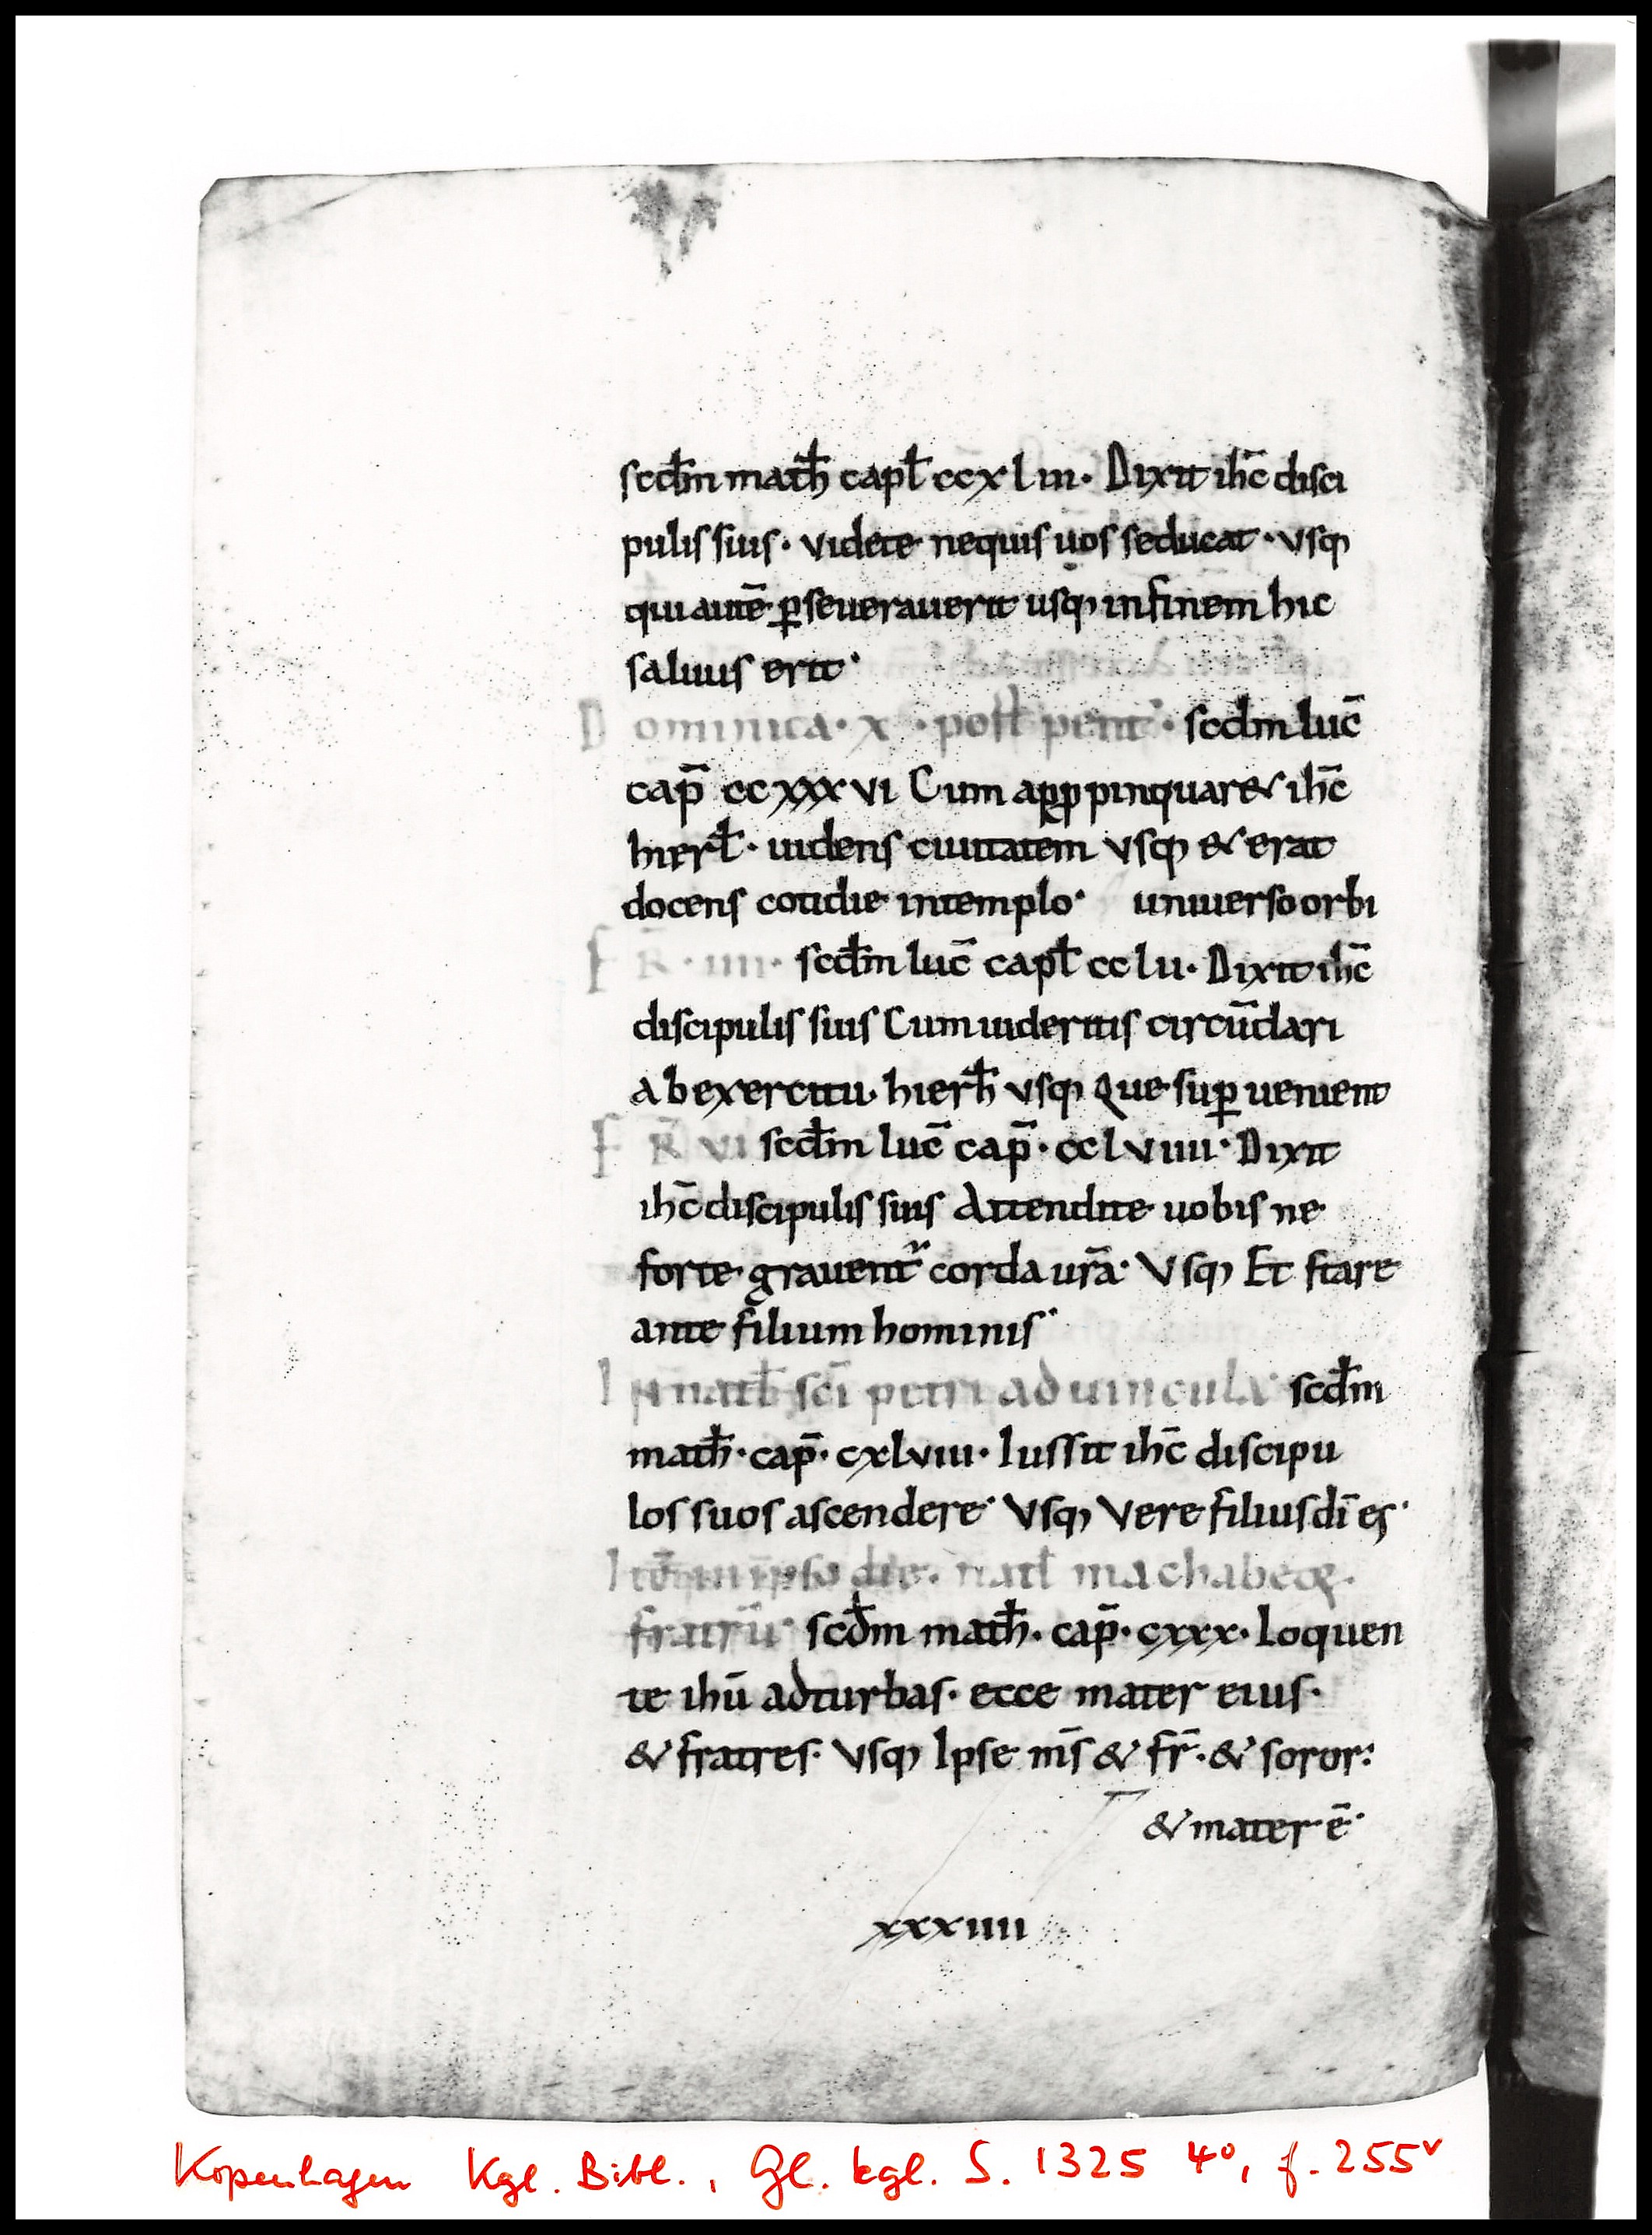 scđm math̄ capł ccxlııı· Dixit ihc̄ disci
pulis suis· videte nequis uos seducat· vsq;
qui autē ꝑseuerauerit usq; infinem hic
saluus erit·
Dominica· x · post pent̄· scdm luc̄
cap̄ ccxxxvi Cum apꝓpinquaret ihc̄
hierł· uidens ciuitatem vsq; & erat
docens cotidie intemplo· uniuerso orbi
FR̄· iııı· scđm luc̄ capł cclu· Dixit ihc̄
discipulis suis Cum uideritis circūdari
ab exercitu hierh̄ vsq; Que suꝑ uenient
FR̄ vi scđm luc̄ cap̄· cclviııı· Dixit
ihc̄ discipulis suis Attendite uobis ne
forte grauent᷑ corda ur̄a· Vsq; Et stare
ante filium hominis·
IN natł sc̄i petri ad uincula· scđm
math̄· cap̄· cxlviıı· Iussit ihc̄ discipu
los suos ascendere· Vsq; Vere filius dī es·
Itē in ipsa die· natł machabeoꝝ·
fratrū· scđm math̄· cap̄· cxxx· Loquen
te ihū ad turbas· ecce mater eius·
& fratres· Vsq; Ipse m̄s & fr̄· & soror:
& mater ē·
xxxiiii
Kopenhagen Kgl. Bibl., Gl. kgl. S. 1325 4°, f. 255v